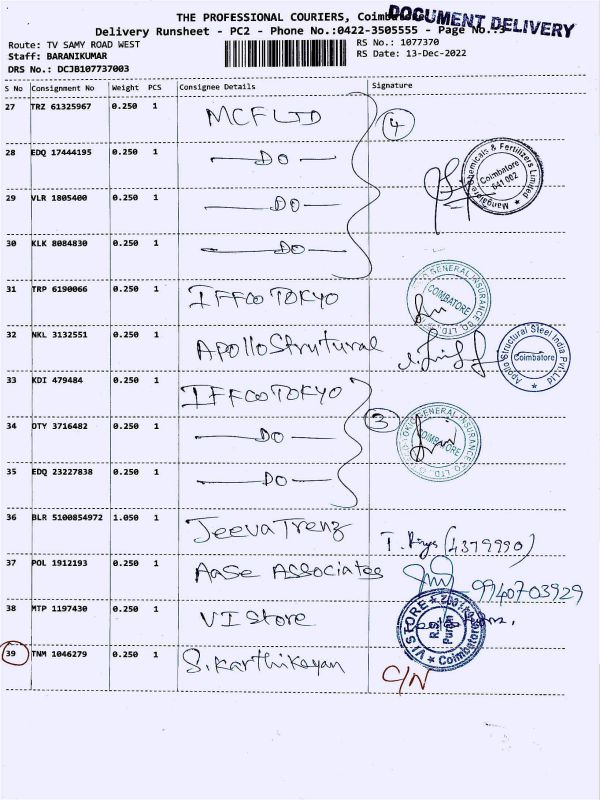 THE PROFESSIONAL COURIERS, Coimbatore
DOCUMENT DELIVERY
Delivery Runsheet - PC2 - Phone No.:0422-3505555 - Page No.:3
Route: TV SAMY ROAD WEST
RS No.: 1077370
Staff: BARANIKUMAR
RS Date: 13-Dec-2022
DRS No.: DCJB107737003
S No Consignment No Weight PCS Consignee Details Signature
27 TRZ 61325967 0.250 1 MCF LTD 4
28 EDQ 17444195 0.250 1 —DO—
Mangalore Chemicals & Fertilizers Limited
Coimbatore
641 002
29 VLR 1805400 0.250 1 —DO—
30 KLK 8084830 0.250 1 —DO—
31 TRP 6190066 0.250 1 IFFCO TOKYO
GENERAL INSURANCE CO LTD
COIMBATORE
32 NKL 3132551 0.250 1 Apollo Strutural
Apollo Structural Steel India Pvt.Ltd
Coimbatore
33 KDI 479484 0.250 1 IFFCO TOKYO
34 DTY 3716482 0.250 1 —DO— 3
GENERAL INSURANCE CO LTD
COIMBATORE
35 EDQ 23227838 0.250 1 —DO—
36 BLR 5100854972 1.050 1 Jeeva Trenz (4379990)
37 POL 1912193 0.250 1 Aase Associates 9940703929
38 MTP 1197430 0.250 1 VI Store
VI STORE
R.S. Puram
Coimbatore
39 TNM 1046279 0.250 1 S. Karthikeyan C/N